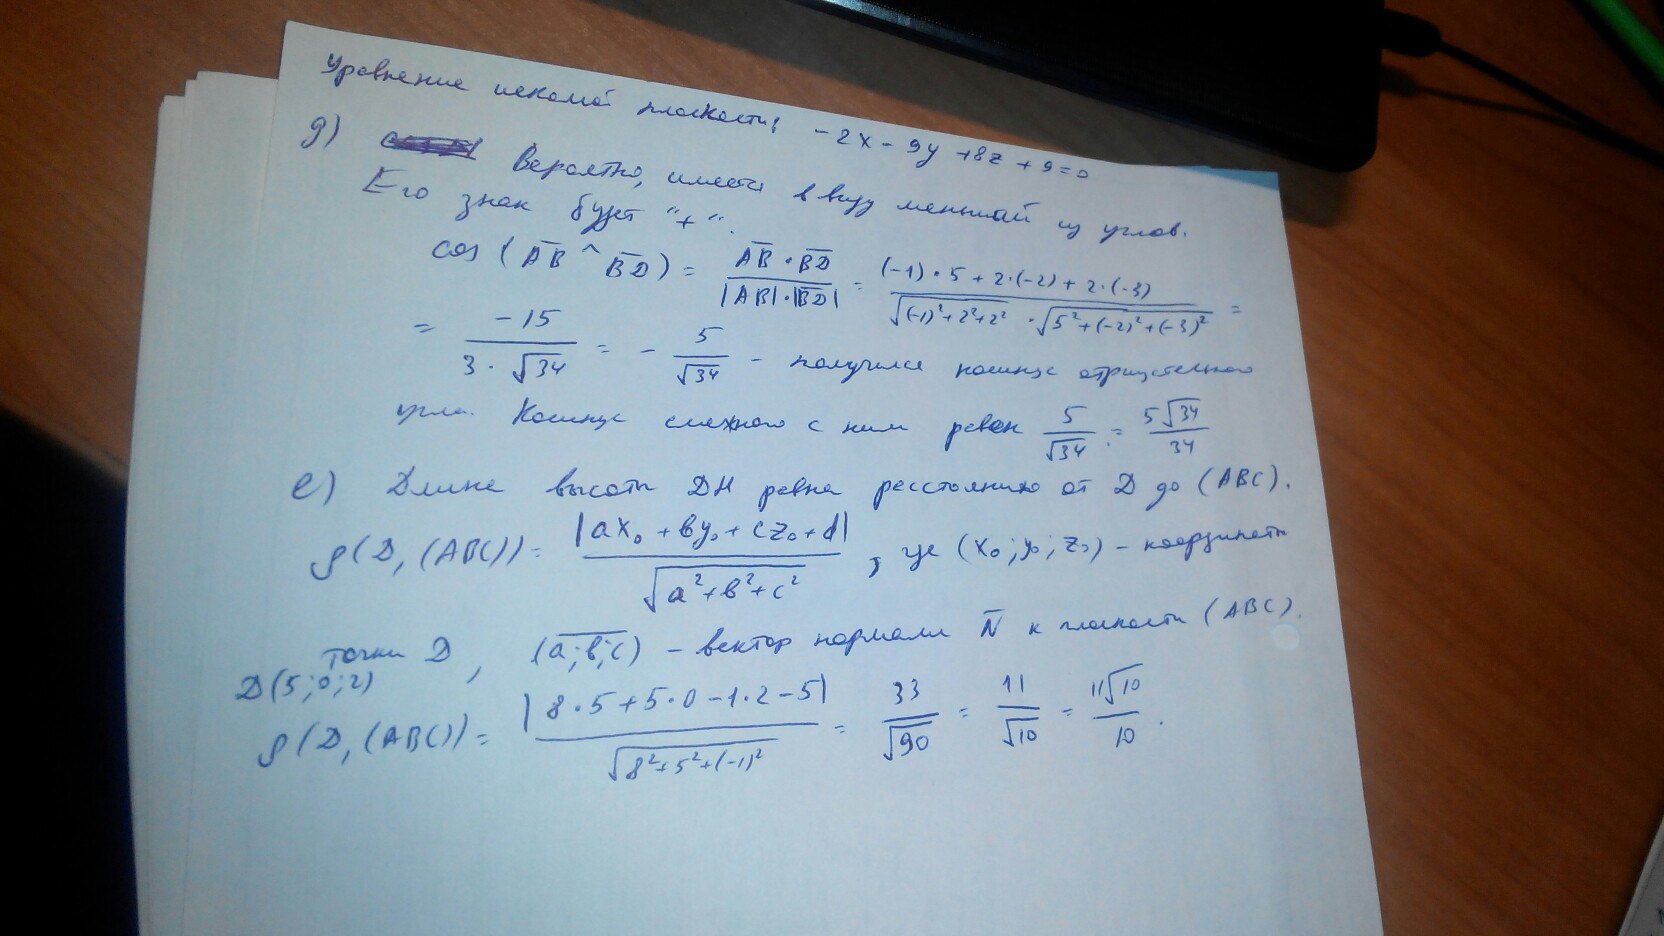 Уравнение искомой плоскости: -2x - 9y + 8z + 9 = 0
д) Вероятно, имеется в виду меньший из углов.
Его знак будет "+".
cos(AB ^ BD) = AB · BD / |AB|·|BD| = (-1)·5 + 2·(-2) + 2·(-3) / √(-1)²+2²+2² · √5²+(-2)²+(-3)² =
= -15 / 3·√34 = - 5/√34 - получился косинус отрицательного
угла. Косинус смежного с ним равен 5/√34 = 5√34/34
е) Длина высоты DH равна расстоянию от D до (ABC).
ρ(D, (ABC)) = |ax₀ + by₀ + cz₀ + d| / √a²+b²+c² , где (x₀; y₀; z₀) - координаты
точки D, (a; b; c) - вектор нормали N к плоскости (ABC).
D(5; 0; 2)
ρ(D, (ABC)) = |8·5 + 5·0 - 1·2 - 5| / √8²+5²+(-1)² = 33/√90 = 11/√10 = 11√10/10 .